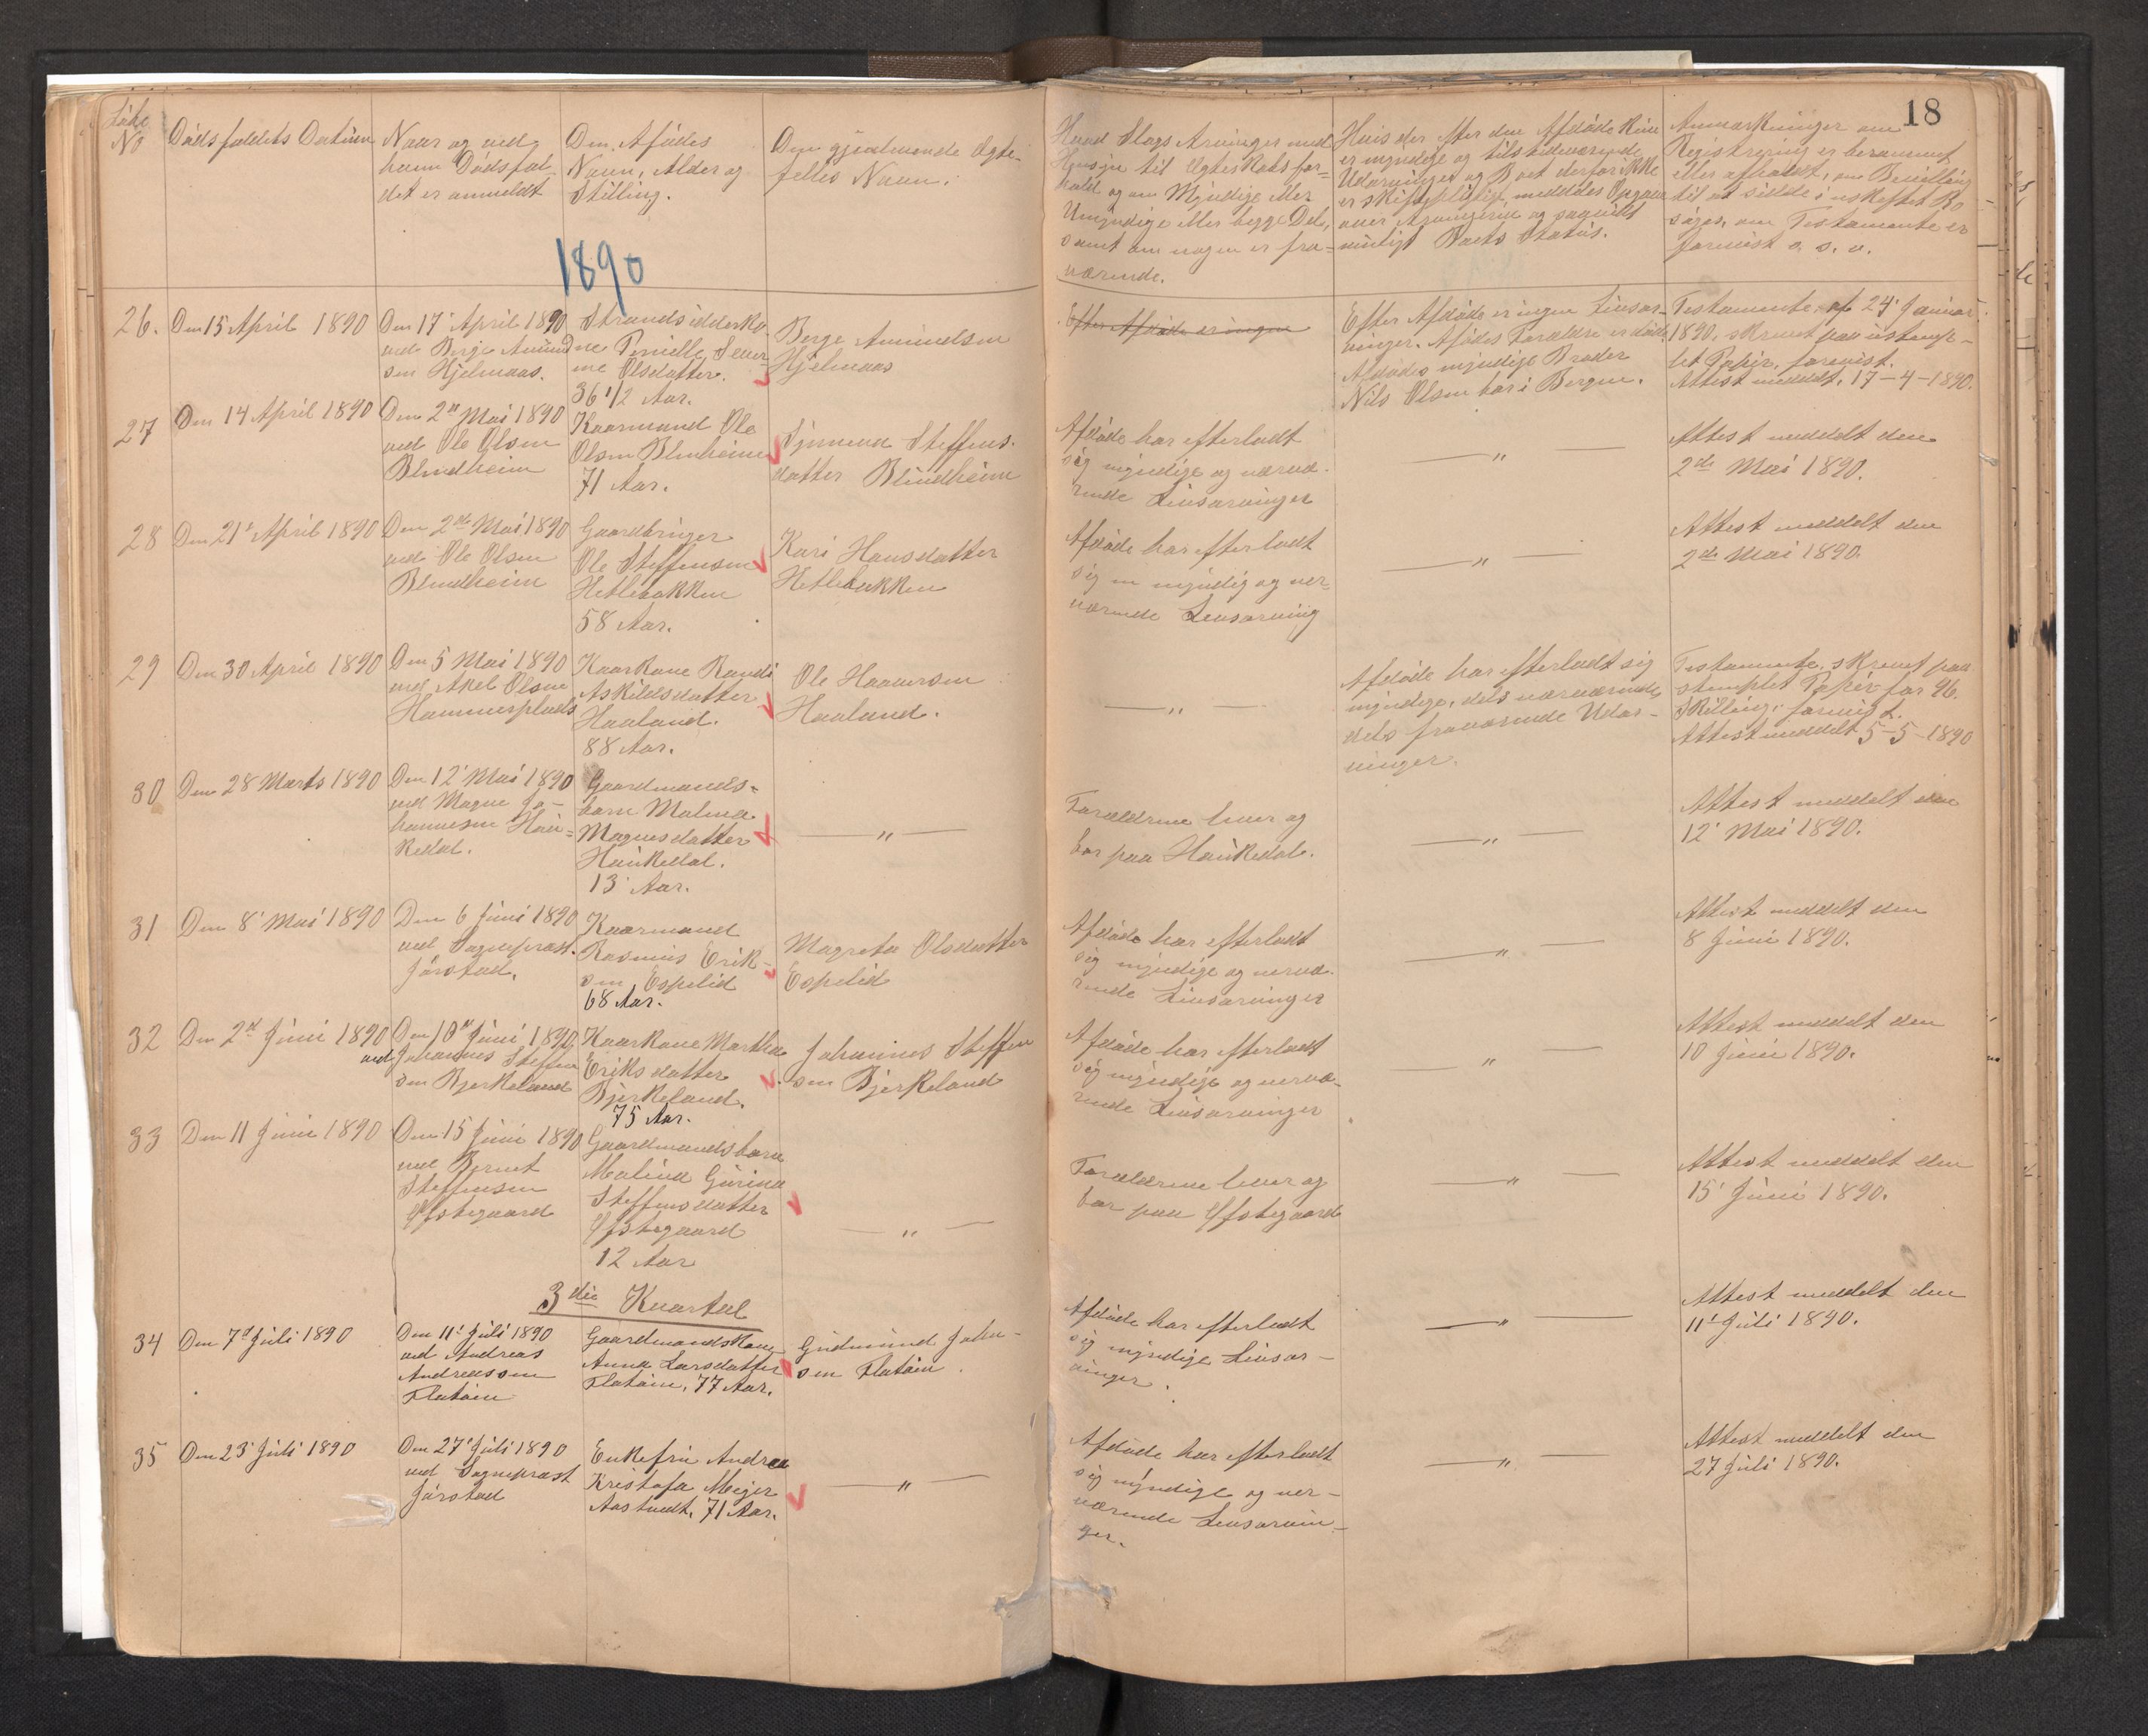 18
Løbe
No
Dødsfaldets Datum
Naar og ved
hvem Dødsfal-
det er anmeldt
Den Afdødes
Navn, Alder og
Stilling.
Den gjenlevende Ægte-
felles Navn.
Hvad Slags Arvinger med
Hensyn til Ægteskabsfor-
hold og om Myndige eller
Umyndige eller begge Dele,
samt om nogen er fra-
værende.
Hvis der efter den Afdøde kun
er myndige og tilstedeværende
Udarvinger og Boet derfor ikke
er skiftepligtig, meddeles Opgave
over Arvingerne og saavidt
muligt Boets Status.
Anmærkninger om
Registrering er berammet
eller afholdt, om Bevilling
til at sidde i uskiftet Bo
søges, om Testamente er
forevist o. s. v.
1890
26.
Den 15 April 1890
Den 17' April 1890
ved Berge Amund
sen Hjelmaas.
Strandsidderko-
ne Pernille Sever
ine Olsdatter.
36 1/2 Aar.
Berge Amundsen
Hjelmaas
Efter Afdøde er ingen
Efter Afdøde er ingen Livsar-
vinger. Afdødes Forældre er døde.
Afdødes myndige Broder
Nils Olsen bor i Bergen.
Testamente af 24' Januar
1890, skrevet paa ustemp-
let Papir, forevist.
Attest meddelt, 17-4-1890.
27
Den 14 April 1890
Den 2den Mai 1890
ved Ole Olsen
Blindheim
Kaarmand Ole
Olsen Blindheim
71 Aar.
Steffens-
datter Blindheim
Afdøde har efterladt
sig myndige og nærvæ-
rende Livsarvinger
— " —
Attest meddelt den
2de Mai 1890.
28
Den 21' April 1890
Den 2de Mai 1890
ved Ole Olsen
Blindheim
Gaardbruger
Ole Steffensen
Hetlebakken
58 Aar.
Kari Hansdatter
Hetlebakken
Afdøde har efterladt
sig en myndig og nær-
værende Livsarving
— " —
Attest meddelt den
2de Mai 1890.
29
Den 30 April 1890
Den 5 Mai 1890
ved Axel Olsen
Hammersplads
Kaarkone Randi
Askildsdatter
Haaland.
88 Aar.
Ole Haaversen
Haaland.
— " —
Afdøde har efterladt sig
myndige, dels nærværende
dels fraværende Udar-
vinger.
Testamente, skrevet paa
stemplet Papir for 96.
Skilling, forevist.
Attest meddelt 5-5-1890
30
Den 28 Marts 1890
Den 12' Mai 1890
ved Magne Jo-
hannesen Hau-
kedal.
Gaardmands-
barn Malena
Magnesdatter
Haukedal.
13 Aar.
— " —
Forældrene lever og
bor paa Haukedal.
— " —
Attest meddelt den
12' Mai 1890.
31
Den 8' Mai 1890
Den 6 Juni 1890
ved Sognepræst
Jørstad.
Kaarmand
Rasmus Erik-
sen Espelid
68 Aar.
Magreta Olsdatter
Espelid
Afdøde har efterladt
sig myndige og nærvæ-
rende Livsarvinger
— " —
Attest meddelt den
8 Juni 1890.
32
Den 2den Juni 1890
Den 10de Juni 1890
ved Johannes Steffen
sen Bjerkeland
Kaarkone Martha
Eriksdatter
Bjerkeland.
75 Aar.
Johannes Steffen
sen Bjerkeland
Afdøde har efterladt
sig myndige og nærvæ-
rende Livsarvinger
— " —
Attest meddelt den
10 Juni 1890.
33
Den 11 Juni 1890
Den 15 Juni 1890
ved Bernt
Steffensen
Øfstegaard
Gaardmandsbarn
Malina Gurina
Steffensdatter
Øfstegaard
12 Aar
— " —
Forældrene lever og
bor paa Øfstegaard
— " —
Attest meddelt den
15' Juni 1890.
3die Kvartal
34
Den 7de Juli 1890
Den 11' Juli 1890
ved Andreas
Andreassen
Flatøen
Gaardmandskone
Anna Larsdatter
Flatøen, 77 Aar.
Gudmund John-
sen Flatøen.
Afdøde har efterladt
sig myndige Livsar-
vinger.
— " —
Attest meddelt den
11' Juli 1890.
35
Den 23' Juli 1890
Den 27' Juli 1890
ved Sognepræst
Jørstad
Enkefru Andrea
Kristofa Mejer
Aastvedt, 71 Aar.
— " —
Afdøde har efterladt
sig myndige og nær-
værende Livsarvin-
ger.
— " —
Attest meddelt den
27 Juli 1890.